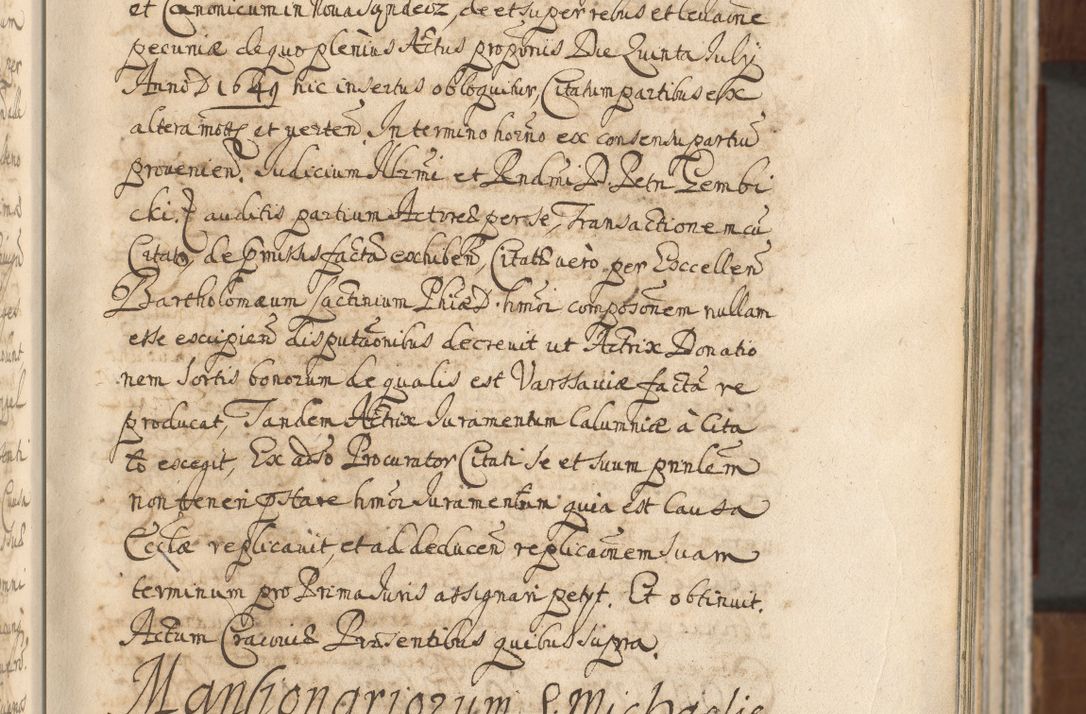 et Canonicum in Nova Sandecz, de et super rebus et levaõne
pecuniæ de quo plenius Actus proprõnis Die Quinta July
Anno D 1649 hic insertus obloquitur, Citatum partibus ex
altera mõtt et verteñ. In termino horño ex consensu partiũ
provenieñ. Judicium Illrmi et Rndmi D. Petri Gembi
cki. auditis partium Actores per se, Transactionem cũ
Citato, de præmissis factã exhibeñ, Citatus verò per Excelleñ
Bartholomæum Lactinium Phiæ D. hmõi compositõnem nullam
esse excipieñ disputaõnibus decrevit ut Actrix Donatio
nem Sortis bonorum de qualis est Varssaviæ factã re
producat, Tandem Actrix Juramentum Calumniæ à Cita
to excepit, Ex adso Procurator Citati se et suum pnnlem
non teneri pstare hmõi Juramentum quia est Causa
Ecclæ replicavit, et ad deduceñ replicaõnem suam
terminum pro Prima Juris assignari petyt. Et obtinuit.
Actum Cracoviæ Præsentibus quibus supra.
Mansionariorum S. Michaelis